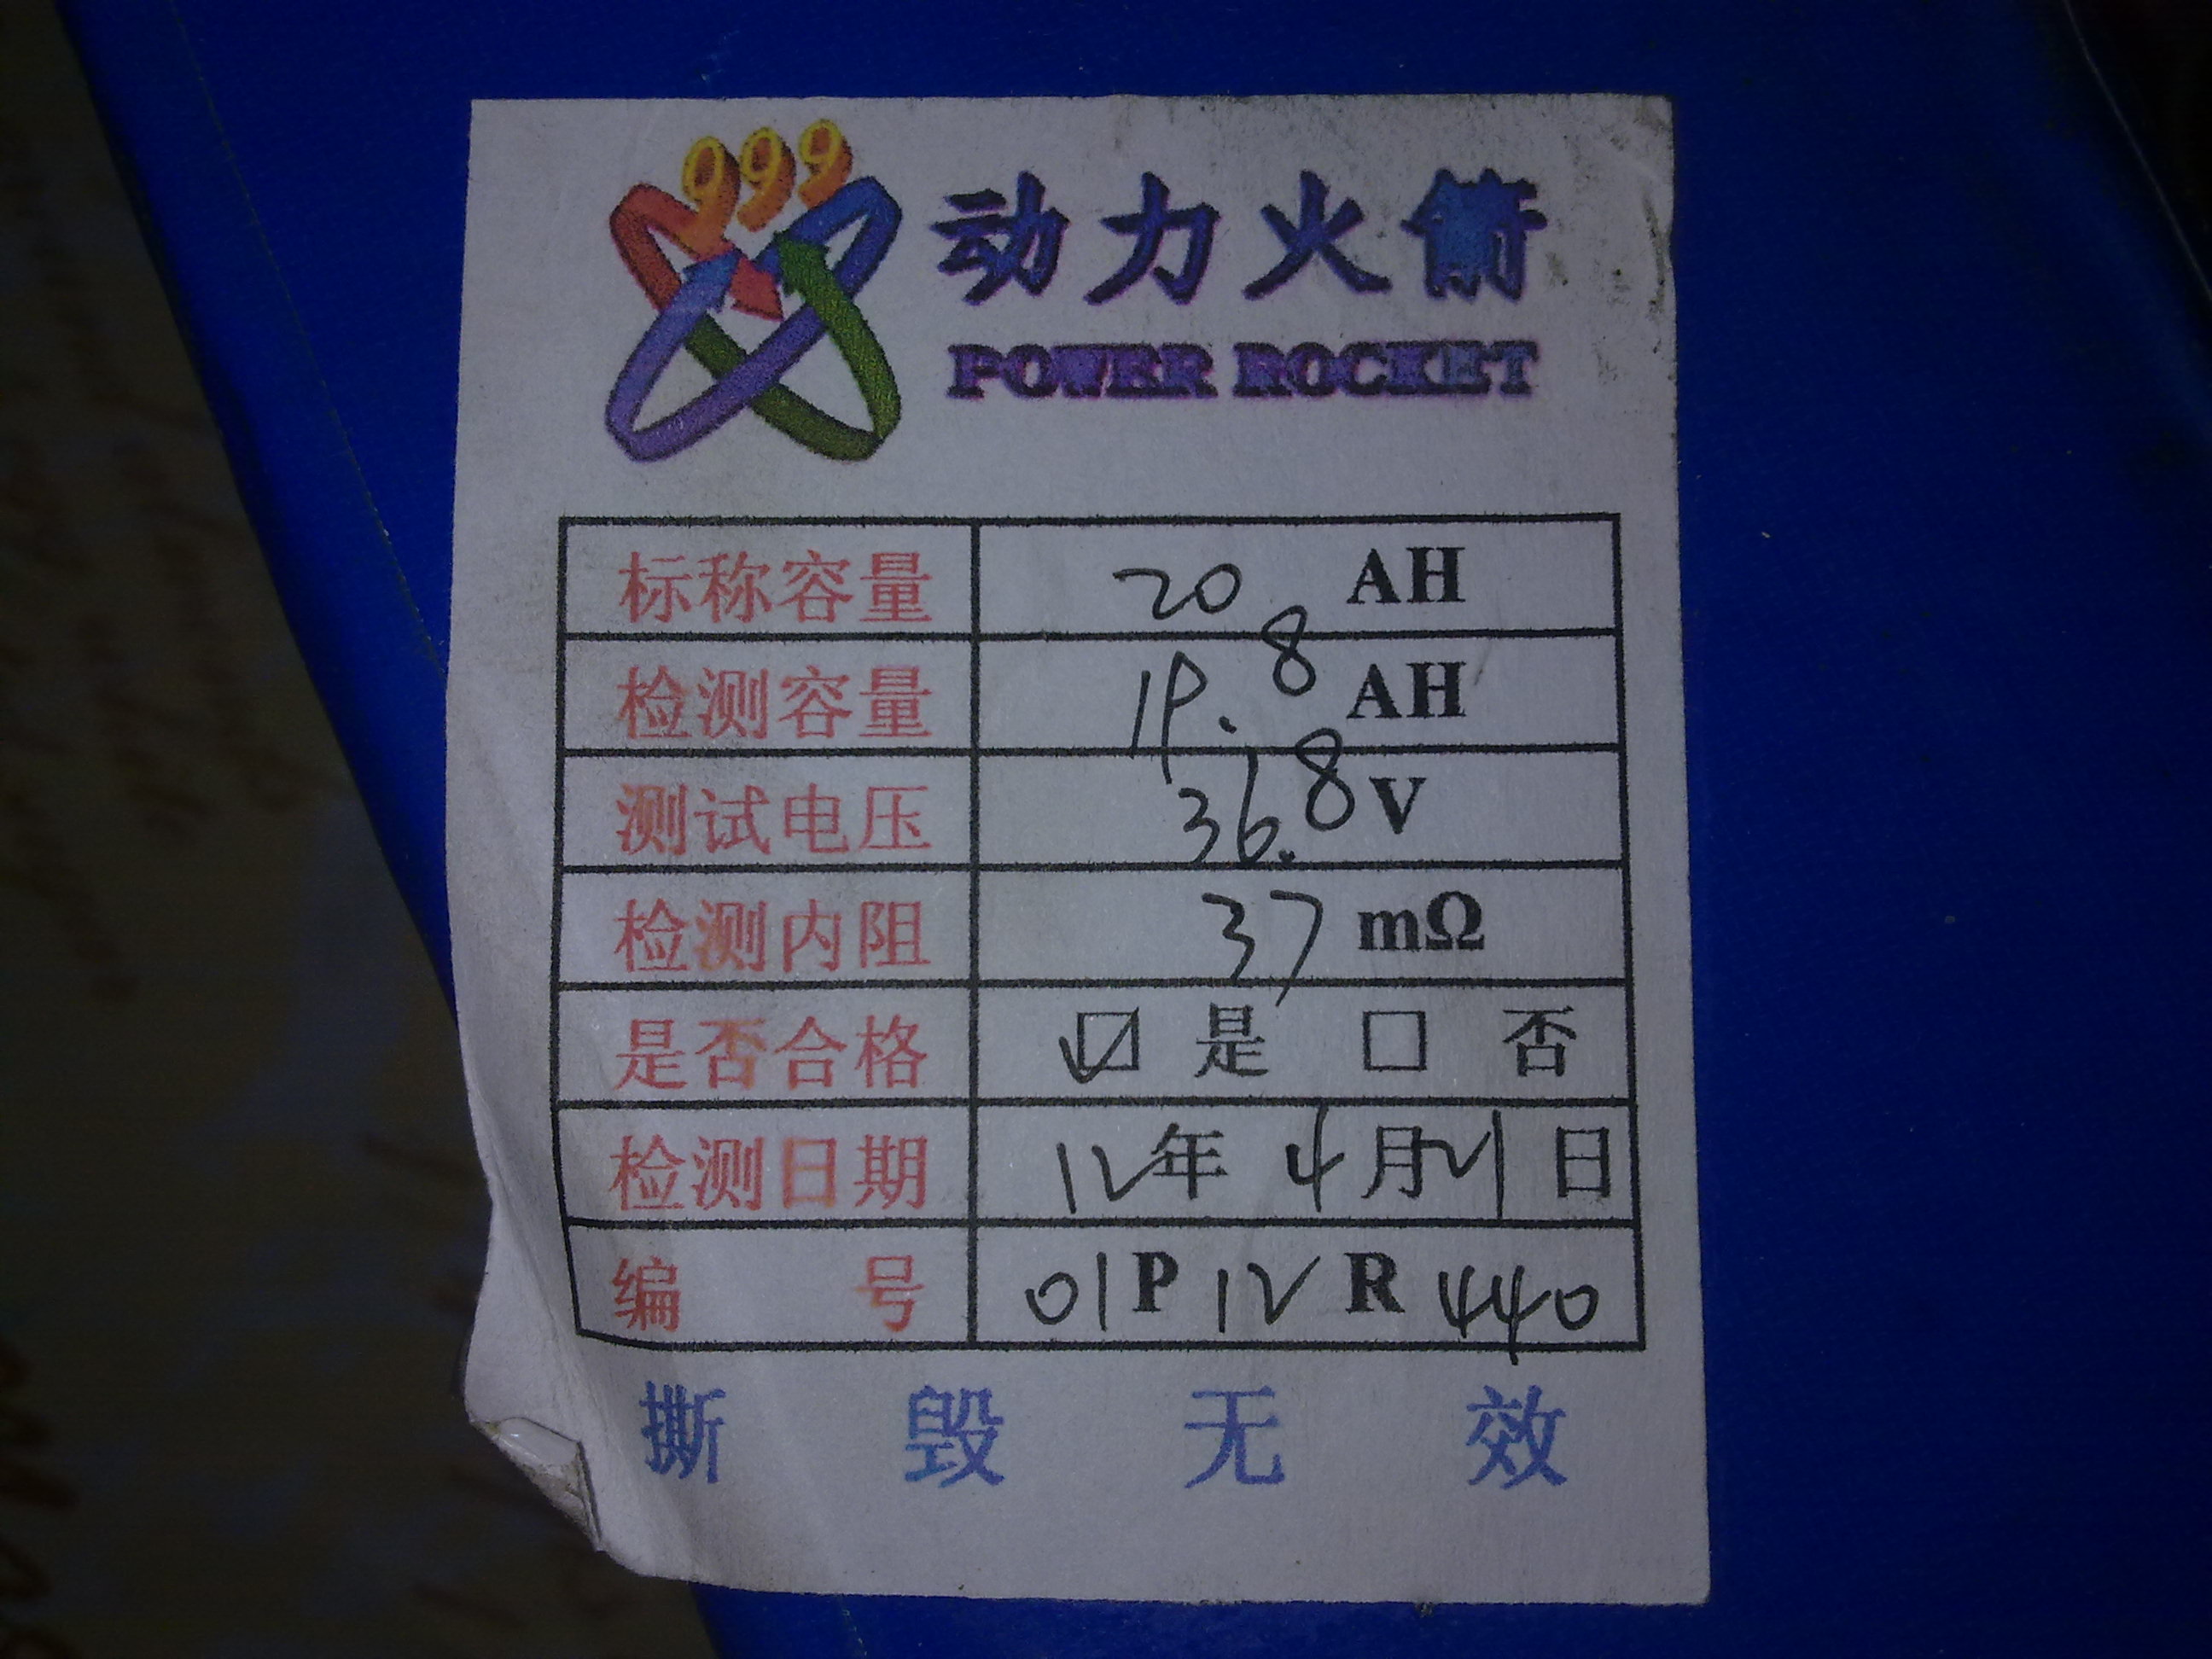 999
动力火箭
POWER ROCKET
标称容量 20 AH
检测容量 19.8 AH
测试电压 36.8 V
检测内阻 37 mΩ
是否合格 ☑ 是 □ 否
检测日期 12年 4月21日
编号 01P12R440
撕毁无效